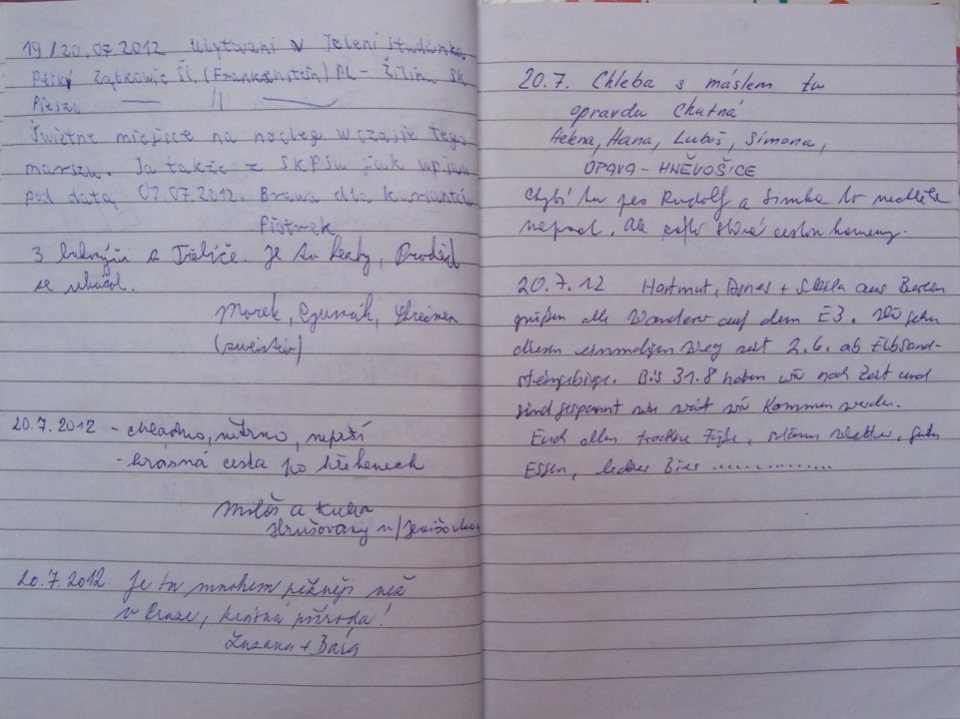 19/20.07.2012 Ubytovani v Jeleni studánka
Ząbkowic Śl. (Frankenstein) PL - Žilina SK
Piesza — 11
Świetne miejsce na nocleg w czasie tego
marszu. Ja także z SKPSu jak wpisu
pod datą 03.07.2012. Brawa dla
Piotrek
3 z . Je tu hezky, Praděd
se ukázal.
Marek,
20.7.2012 - chladno, větrno, neprší
- krásná cesta po hřebenech
Miloš a Kuba
Hrušovany n/Jevišovkou
20.7.2012. Je tu mnohem pěkněji než
v Praze, krásná příroda!
Zuzana + Bára
20.7. Chleba s máslem tu
opravdu chutná
Helena, Hana, Luboš, Simona,
OPAVA - HNĚVOŠICE
Chybí tu pes Rudolf a Simba to nechtěla
napsat. Ale cestou kameny.
20.7.12 Hartmut, + aus Berlin
grüßen alle Wanderer auf dem E3. Wir gehen
diesen einmaligen Weg seit 2.6. ab Elbsand-
steingebirge. Bis 31.8 haben wir noch Zeit und
sind gespannt wie weit wir kommen werden.
Euch allen trockene Füße, schönes Wetter, gutes
Essen, lecker Bier ..............